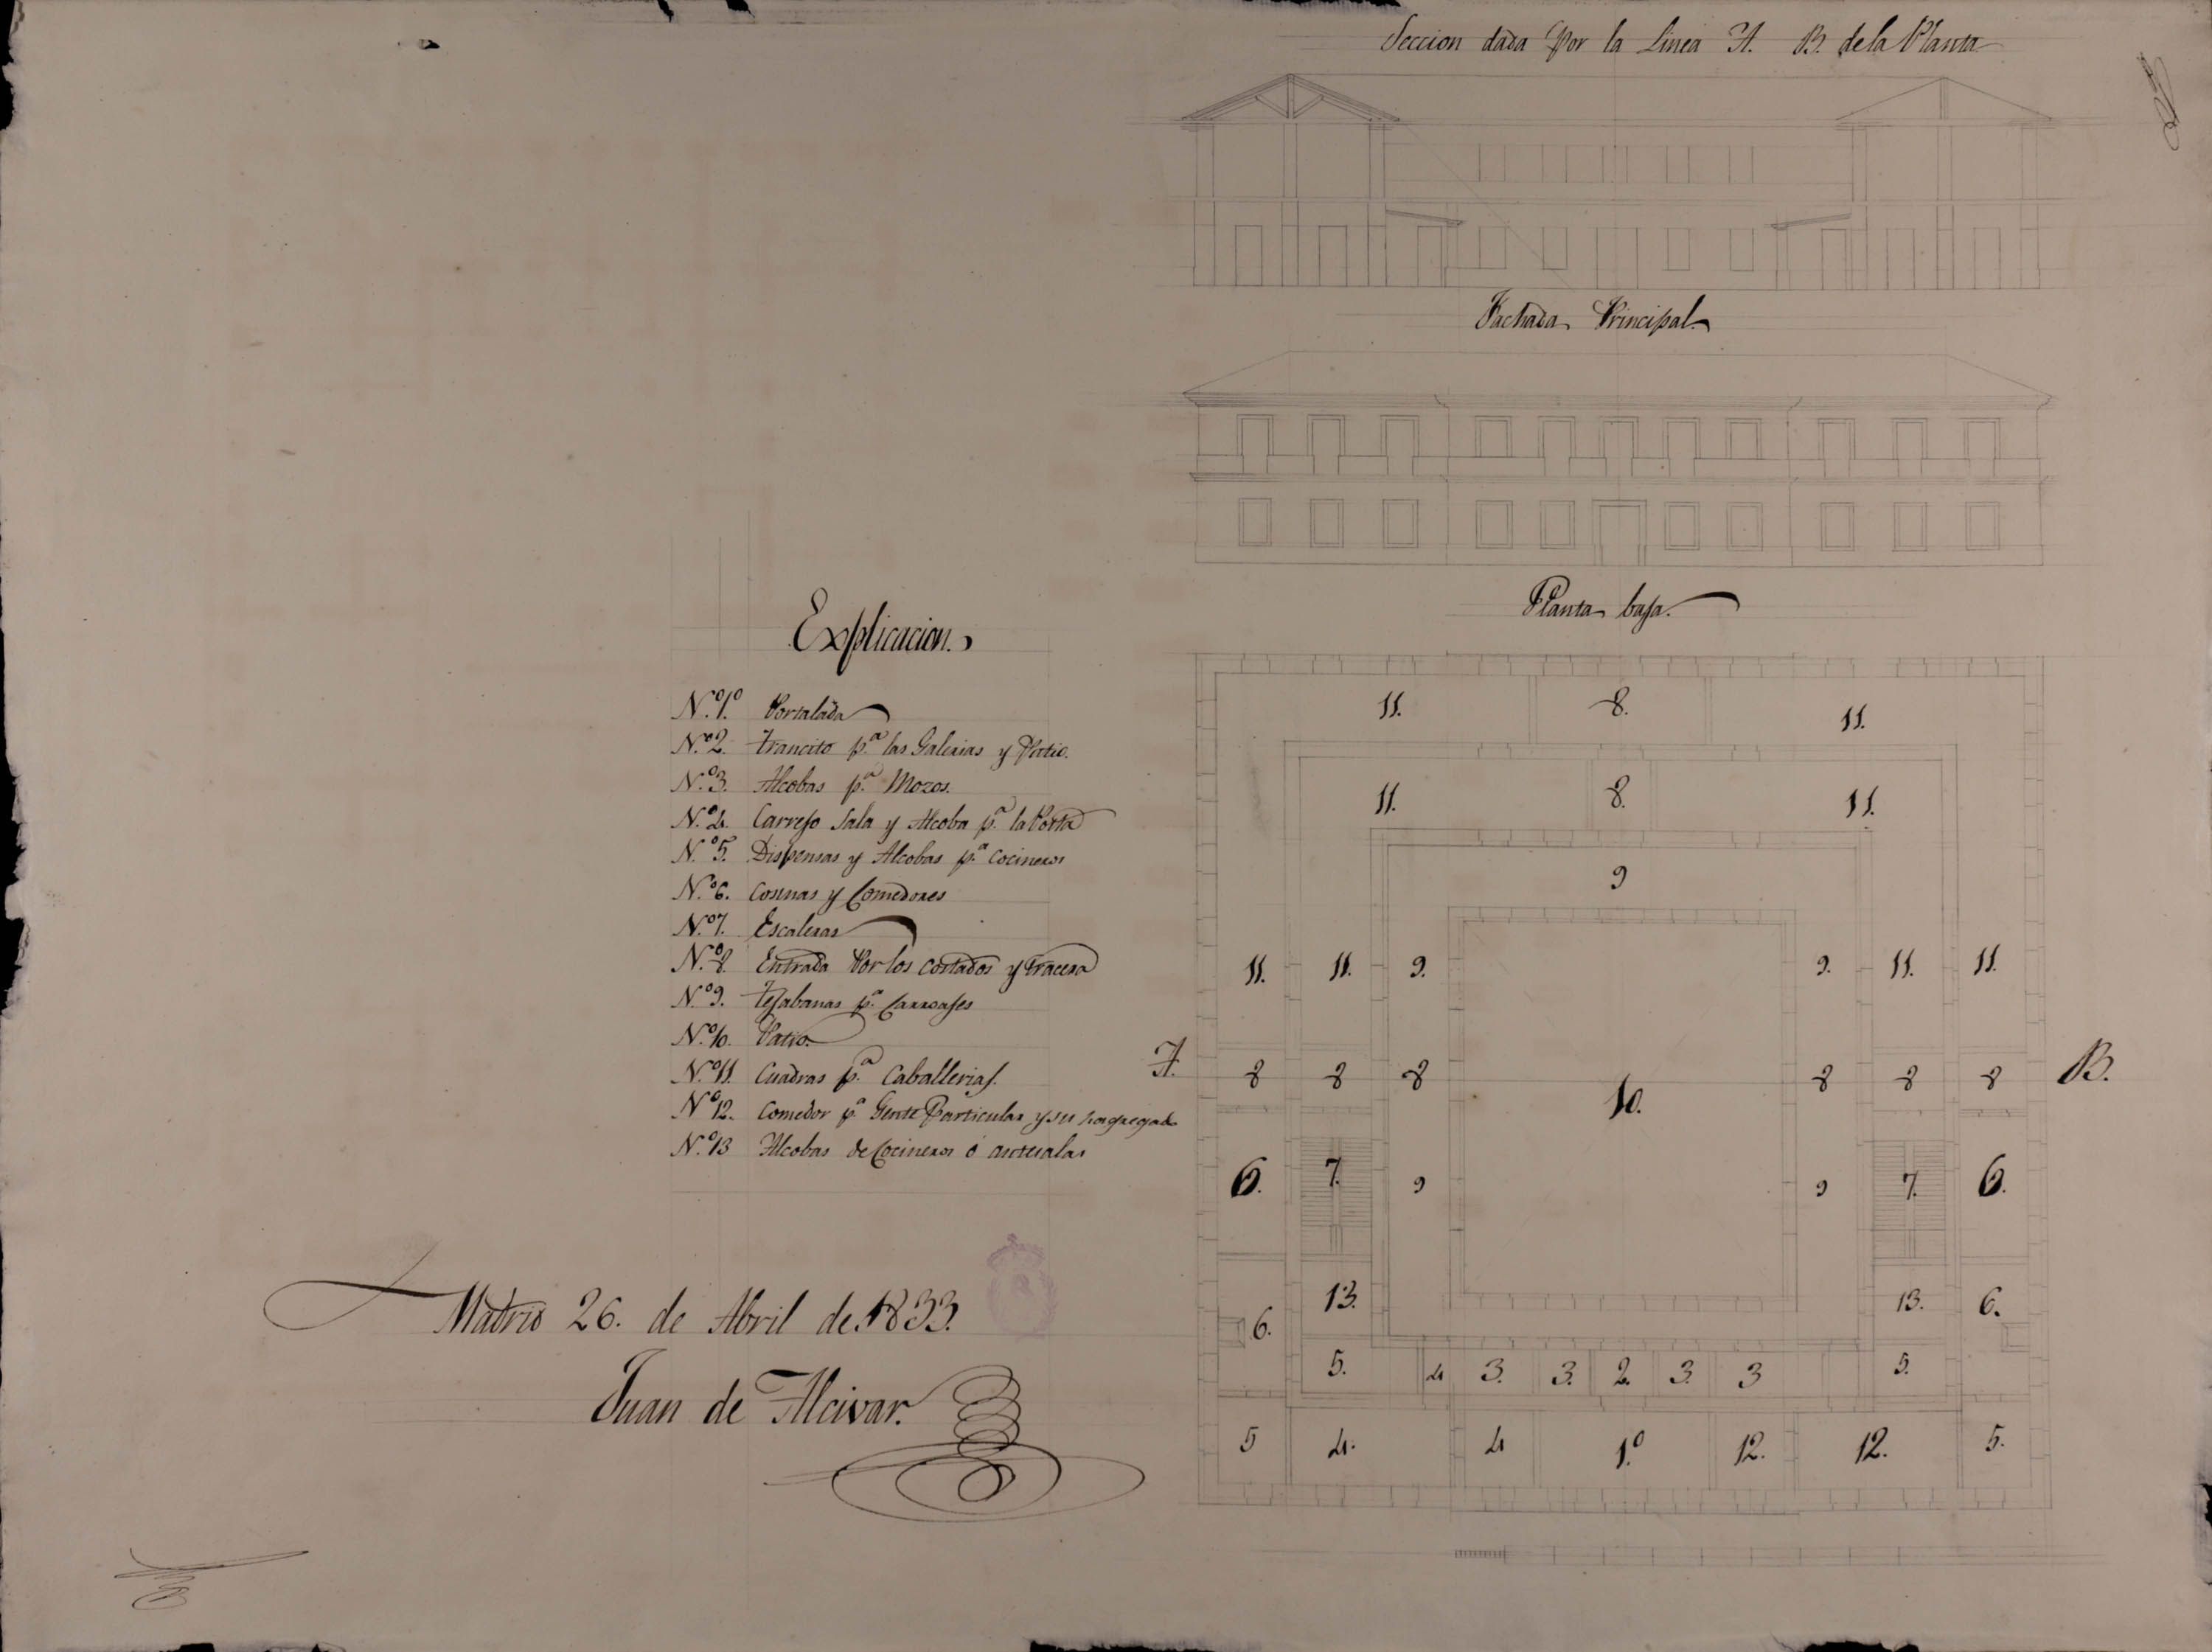 Seccion dada Por la Linea A. B. de la Planta
Fachada Principal.
Planta baja.
Explicacion.
N.º 1.º Portalada
N.º 2. Trancito p.ª las Galerias y Patio.
N.º 3. Alcobas p.ª Mozos.
N.º 4. Carrejo Sala y Alcoba p.ª la Porta
N.º 5. Dispensas y Alcobas p.ª Cocineros
N.º 6. Cosinas y Comedores
N.º 7. Escaleras
N.º 8. Entrada Por los Costados y Tracera
N.º 9. Tejabanas p.ª Carroajes
N.º 10. Patio.
N.º 11. Cuadras p.ª Caballerias.
N.º 12. Comedor p.ª Gente Particular y su
N.º 13 Alcobas de Cocineros ó antesalas
Madrid 26. de Abril de 1833.
Juan de Alcivar.
11. 8. 11.
11. 8. 11.
9
11. 11. 9. 9. 11. 11.
A. 8 8 8 10. 8 8 8 B.
6. 7. 9 9 7. 6.
13. 13. 6.
6.
5. 4 3. 3. 2. 3. 3 5.
5 4. 4 1.º 12. 12. 5.